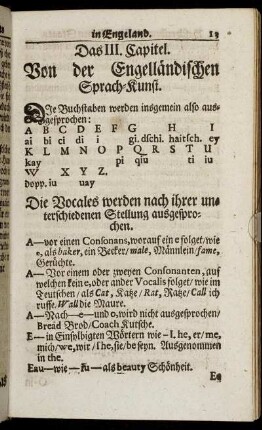 in Engeland. 13
Das III. Capitel.
Von der Engelländischen
Sprach-Kunst.
Die Buchstaben werden insgemein also aus-
gesprochen:
A B C D E F G H I
ai bi ci di i gi. dschi. haitsch. ey
K L M N O P Q R S T U
kay pi qiu ti iu
W X Y Z.
dopp. iu uay
Die Vocales werden nach ihrer un-
terschiedenen Stellung ausgespro-
chen.
A—vor einen Consonans, worauf ein e folget / wie
e, als baker, ein Becker / male, Männlein / fame,
Gerüchte.
A—Vor einem oder zweyen Consonanten, auf
welchen kein e, oder ander Vocalis folget / wie im
Teutschen / als Cat, Katze / Rat, Ratze / Call ich
ruffe. Wall die Maure.
A—Nach—e—und o, wird nicht ausgesprochen /
Bread Brod / Coach Kutsche.
E—in Einsylbigten Wörtern wie—I. he, er / me,
mich / we, wir / she, sie / be seyn. Ausgenommen
in the.
Eau—wie—iu—als beauty Schönheit.